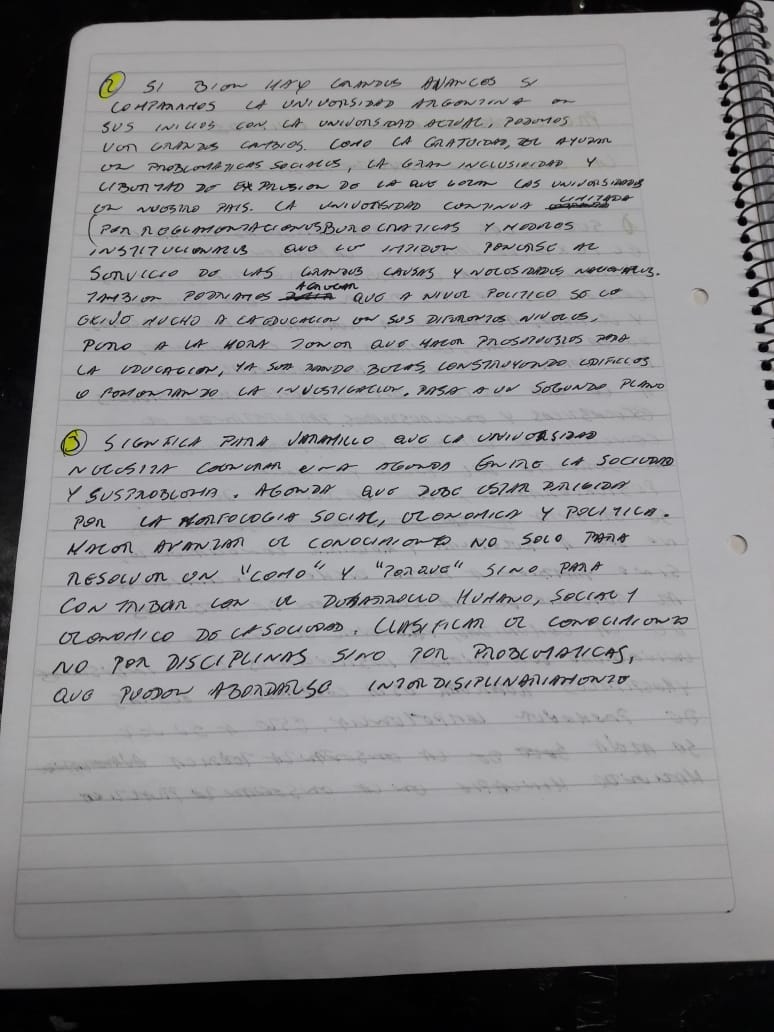 2 SI BIEN HAY GRANDES AVANCES SI
COMPARAMOS LA UNIVERSIDAD ARGENTINA EN
SUS INICIOS CON LA UNIVERSIDAD ACTUAL, PODEMOS
VER GRANDES CAMBIOS. COMO LA GRATUIDAD, EL AYUDAR
EN PROBLEMATICAS SOCIALES, LA GRAN INCLUSIVIDAD Y
LIBERTAD DE EXPRESION DE LA QUE GOZAN LAS UNIVERSIDADES
EN NUESTRO PAIS. LA UNIVERSIDAD CONTINUA LIMITADA
(POR REGLAMENTACIONES BUROCRATICAS Y MODELOS
INSTITUCIONALES QUE LE IMPIDEN PONERSE AL
SERVICIO DE LAS GRANDES CAUSAS Y NECESIDADES NACIONALES.
TAMBIEN PODRIAMOS AGREGAR QUE A NIVEL POLITICO SE LE
EXIJE MUCHO A LA EDUCACION EN SUS DIFERENTES NIVELES,
PERO A LA HORA TENER QUE HACER PRESUPUESTOS PARA
LA EDUCACION, YA SEA DANDO BECAS, CONSTRUYENDO EDIFICIOS
O FOMENTANDO LA INVESTIGACION, PASA A UN SEGUNDO PLANO
3 SIGNFICA PARA JARAMILLO QUE LA UNIVERSIDAD
NECESITA GENERAR UNA AGENDA ENTRE LA SOCIEDAD
Y SUS PROBLEMA. AGENDA QUE DEBE ESTAR DIRIGIDA
POR LA MORFOLOGIA SOCIAL, ECONOMICA Y POLITICA.
HACER AVANZAR EL CONOCIMIENTO NO SOLO PARA
RESOLVER UN "COMO" Y "PORQUE" SINO PARA
CONTRIBUIR CON EL DESARROLLO HUMANO, SOCIAL Y
ECONOMICO DE LA SOCIEDAD. CLASIFICAR EL CONOCIMIENTO
NO POR DISCIPLINAS SINO POR PROBLEMATICAS,
QUE PUEDEN ABORDARSE INTERDISIPLINARIAMENTE